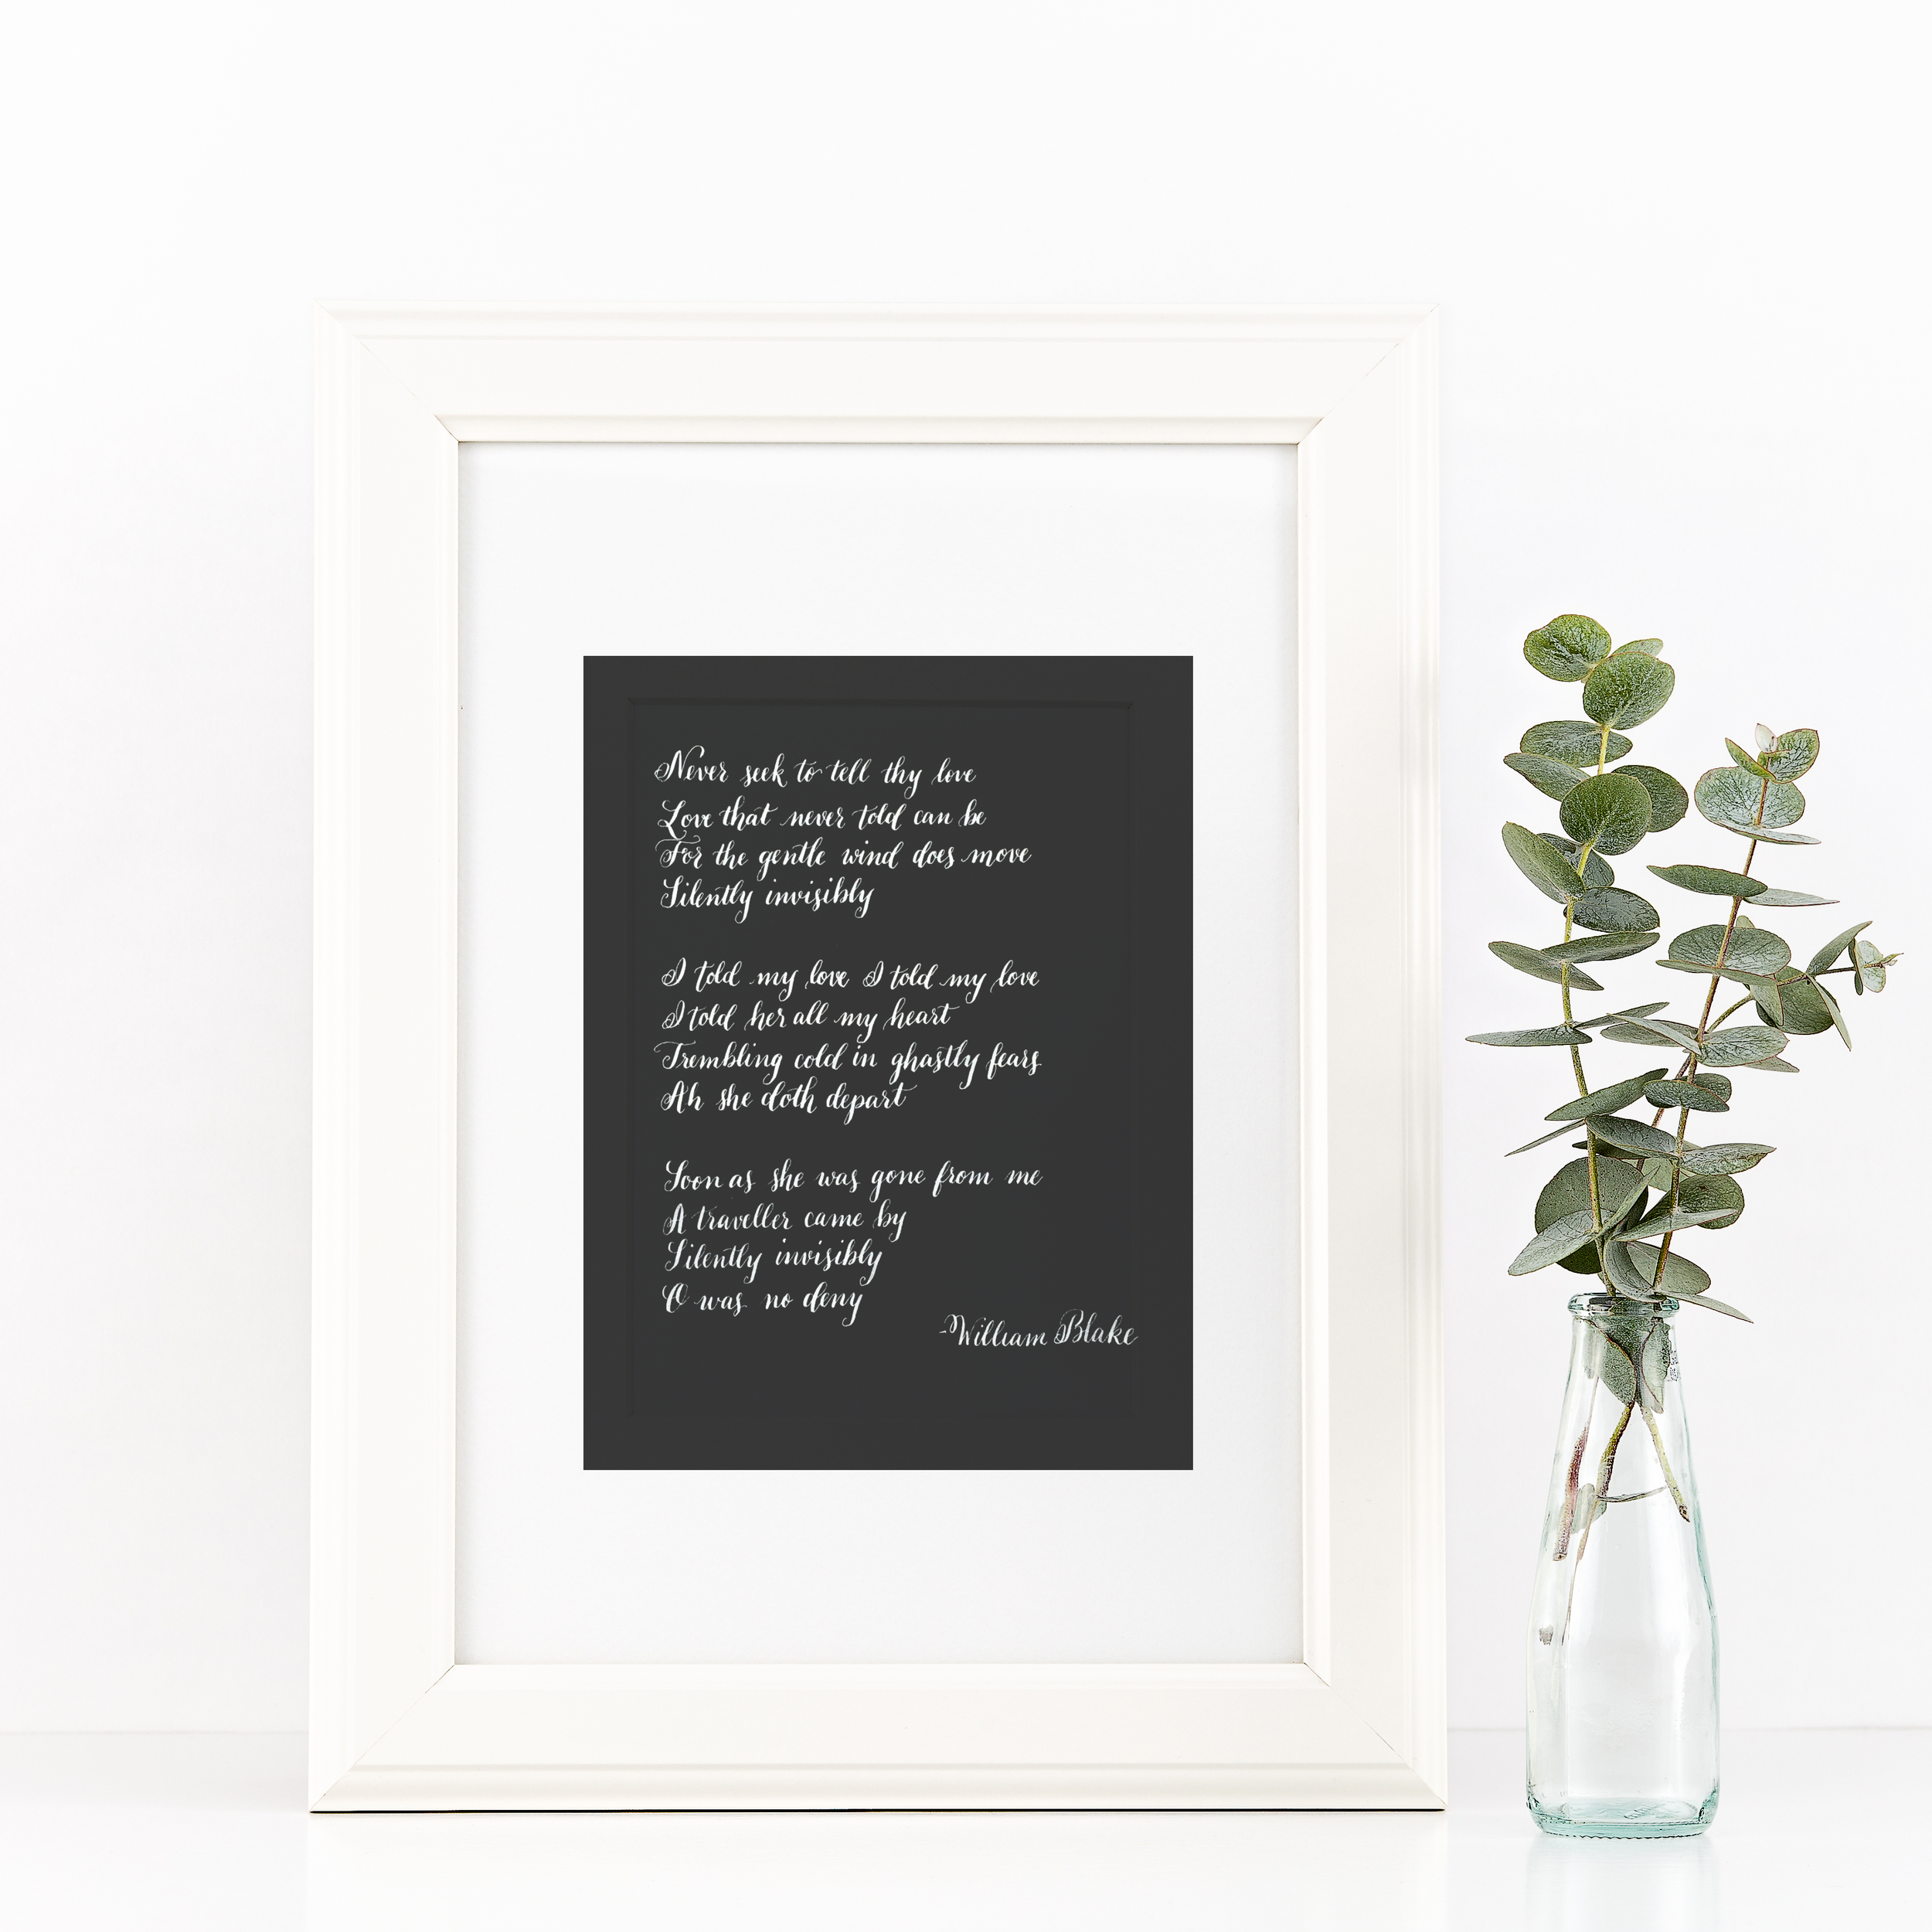 Never seek to tell thy love
Love that never told can be
For the gentle wind does move
Silently invisibly
I told my love I told my love
I told her all my heart
Trembling cold in ghastly fears
Ah she doth depart
Soon as she was gone from me
A traveller came by
Silently invisibly
O was no deny
-William Blake